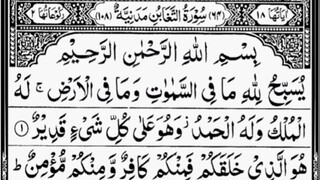 اٰیاتُهَا ١٨ (٦٤) سُوْرَةُ التَّغَابُنِ مَدَنِیَّةٌ (١٠٨) رُكُوْعَاتُهَا ٢
بِسْمِ اللّٰهِ الرَّحْمٰنِ الرَّحِیْمِ
یُسَبِّحُ لِلّٰهِ مَا فِی السَّمٰوٰتِ وَمَا فِی الْاَرْضِ ۚ لَهُ
الْمُلْكُ وَلَهُ الْحَمْدُ ۫ وَهُوَ عَلٰی كُلِّ شَیْءٍ قَدِیْرٌ ۝١
هُوَ الَّذِیْ خَلَقَكُمْ فَمِنْكُمْ كَافِرٌ وَّمِنْكُمْ مُّؤْمِنٌ ؕ